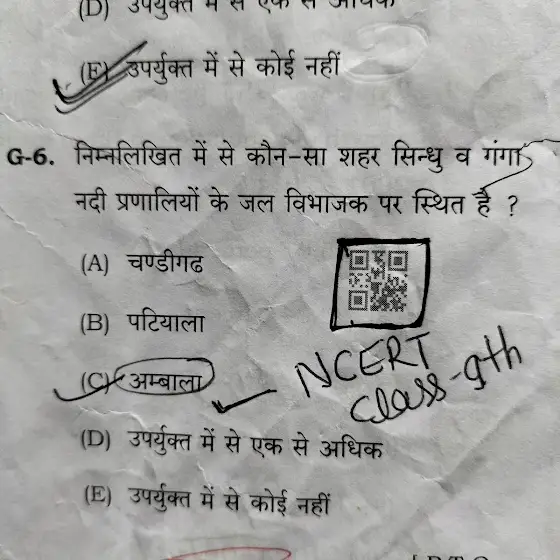 (D) उपर्युक्त में से एक से अधिक
(E) उपर्युक्त में से कोई नहीं
G-6. निम्नलिखित में से कौन-सा शहर सिन्धु व गंगा
नदी प्रणालियों के जल विभाजक पर स्थित है ?
(A) चण्डीगढ
(B) पटियाला
NCERT
(C) अम्बाला
Class-9th
(D) उपर्युक्त में से एक से अधिक
(E) उपर्युक्त में से कोई नहीं